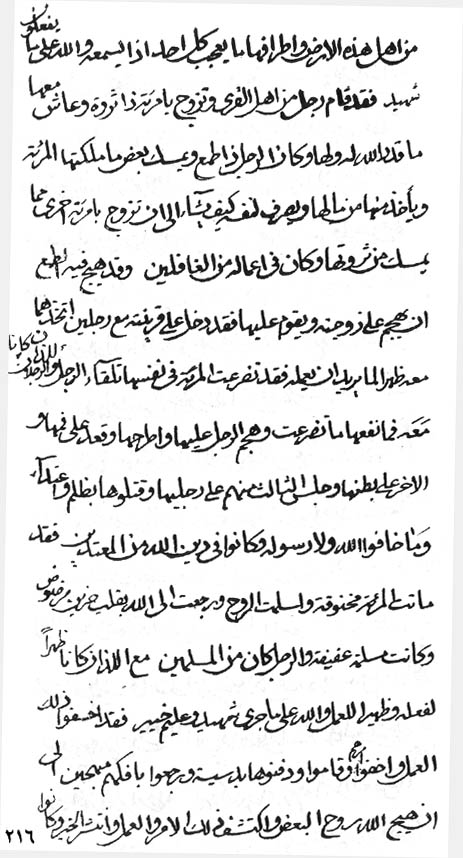 من اهل هذه الارض واطرافها ما يعجب كل احد اذا يسمعه والله على ما يفعلون
شهيد فقد قام رجل من اهل القرى وتزوج بامرئة ذا ثروة وعاش معها
ما قدر الله له ولها وكان الرجل ذا طمع ويمسك بعض ما ملكتها المرئة
ويأخذ منها من مالها ويصرف لنفسه كيف يشآء الى ان تزوج بامرئة اخرى مما
يمسك من ثروتها وكان في اعماله من الغافلين وقد هيج فيه الطمع
ان يهجم على زوجته ويقوم عليها فقد دخل على قرينته مع رجلين اتخذهما
معه ظهيرا لما يريد ان يعمله فقد تضرعت المرئة في نفسها تلقآء الرجل والرجلان اللذان كانا
معه فما نفعها ما تضرعت وهجم الرجل عليها واطرحها وقعد على فمها و
الاخر على بطنها وجلس الثالث منهم على رجليها وقتلوها بظلم واعتدآء
وما خافوا الله ولا رسوله وكانوا في دين الله من المعتدين فقد
ماتت المرئة مخنوقة واسلمت الروح ورجعت الى الله بقلب حزين مرضوض
وكانت مسلمة عفيفة والرجل كان من المسلمين مع اللذان كانا ظهيراً
لفعله وظهيرا للعمل والله على ما جرى شهيد وعليم خبير فقد اخسفوا ذلك
العمل واخفوا وقاموا ودفنوها بدسية ورجعوا بافكهم مبهجين الى
ان هيج الله بروح البعض واكتشف ذلك الامر والعمل وانتشر الخبر وكانوا
٢١٦